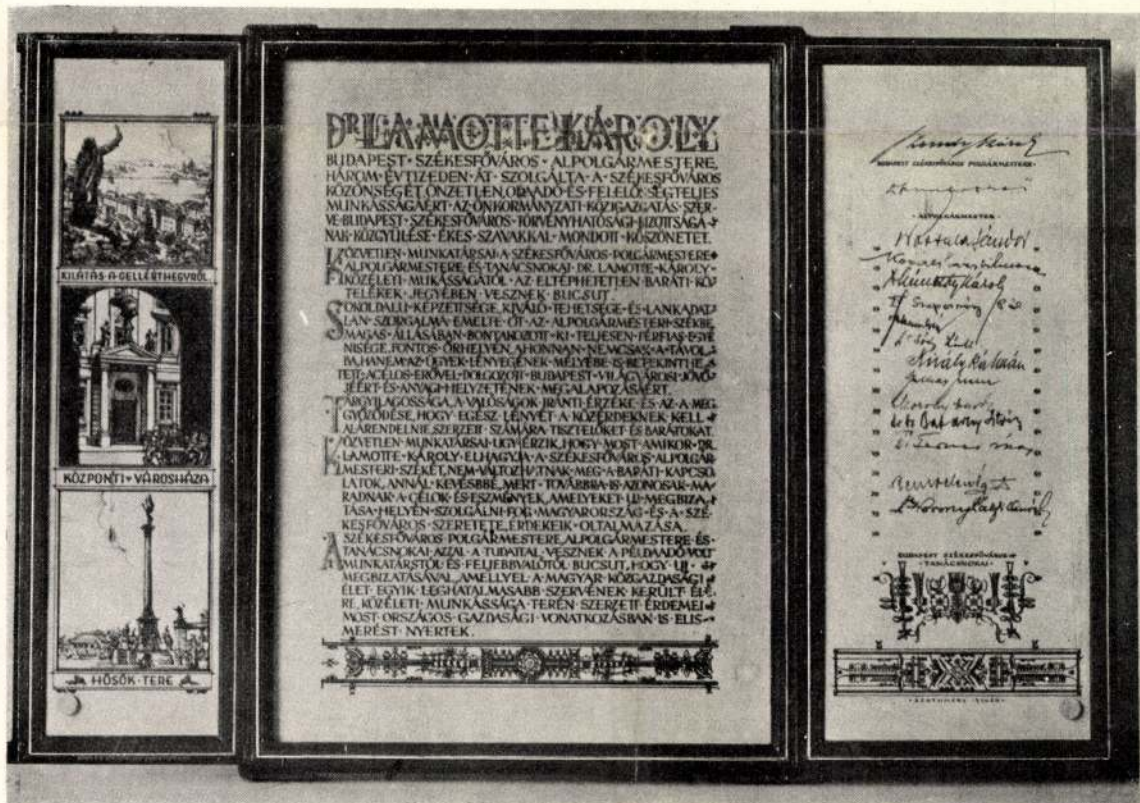 KILÁTÁS · A · GELLÉRTHEGYRŐL
KÖZPONTI · VÁROSHÁZA
HŐSÖK · TERE
DR LAMOTTE KÁROLY
BUDAPEST · SZÉKESFŐVÁROS · ALPOLGÁRMESTERE,
HÁROM · ÉVTIZEDEN · ÁT · SZOLGÁLTA · A · SZÉKESFŐVÁROS
KÖZÖNSÉGÉT. ÖNZETLEN, ODAADÓ · ÉS · FELELŐSSÉGTELJES
MUNKÁSSÁGÁÉRT · AZ · ÖNKORMÁNYZATI · KÖZIGAZGATÁS · SZER-
VE · BUDAPEST · SZÉKESFŐVÁROS · TÖRVÉNYHATÓSÁGI · BIZOTTSÁGÁ-
NAK · KÖZGYŰLÉSE · ÉKES · SZAVAKKAL · MONDOTT · KÖSZÖNETET.
KÖZVETLEN · MUNKATÁRSAI · A · SZÉKESFŐVÁROS · POLGÁRMESTERE
ALPOLGÁRMESTERE · ÉS · TANÁCSNOKAI · DR. LAMOTTE · KÁROLY
KÖZÉLETI · MUNKÁSSÁGÁTÓL · AZ · ELTÉPHETETLEN · BARÁTI · KÖ-
TELÉKEK · JEGYÉBEN · VESZNEK · BUCSUT.
SOKOLDALU · KÉPZETTSÉGE, KIVÁLÓ · TEHETSÉGE · ÉS · LANKADAT-
LAN · SZORGALMA · EMELTE · ŐT · AZ · ALPOLGÁRMESTERI · SZÉKBE,
MAGAS · ÁLLÁSÁBAN · BONTAKOZOTT · KI · TELJESEN · FÉRFIAS · EGYÉ-
NISÉGE. FONTOS · ŐRHELYÉN, AHONNAN · NEMCSAK · A · TÁVOL-
BA, HANEM · AZ · ÜGYEK · LÉNYEGÉNEK · MÉLYÉBE · IS · BETEKINTHE-
TETT, ACÉLOS · ERŐVEL · DOLGOZOTT · BUDAPEST · VILÁGVÁROSI · JÖVŐ-
JÉÉRT · ÉS · ANYAGI · HELYZETÉNEK · MEGALAPOZÁSÁÉRT.
TÁRGYILAGOSSÁGA, A · VALÓSÁGOK · IRÁNTI · ÉRZÉKE · ÉS · AZ · A · MEG-
GYŐZŐDÉSE, HOGY · EGÉSZ · LÉNYÉT · A · KÖZÉRDEKNEK · KELL
ALÁRENDELNIE, SZERZETT · SZÁMÁRA · TISZTELŐKET · ÉS · BARÁTOKAT.
KÖZVETLEN · MUNKATÁRSAI · UGY · ÉRZIK, HOGY · MOST · AMIKOR · DR.
LAMOTTE · KÁROLY · ELHAGYJA · A · SZÉKESFŐVÁROS · ALPOLGÁR-
MESTERI · SZÉKÉT, NEM · VÁLTOZHATNAK · MEG · A · BARÁTI · KAPCSO-
LATOK, ANNÁL · KEVÉSBBÉ, MERT · TOVÁBBRA · IS · AZONOSAK · MA-
RADNAK · A · CÉLOK · ÉS · ESZMÉNYEK, AMELYEKET · UJ · MEGBIZA-
TÁSA · HELYÉN · SZOLGÁLNI · FOG: MAGYARORSZÁG · ÉS · A · SZÉ-
KESFŐVÁROS · SZERETETE, ÉRDEKEIK · OLTALMAZÁSA.
A SZÉKESFŐVÁROS · POLGÁRMESTERE, ALPOLGÁRMESTERE · ÉS
TANÁCSNOKAI · AZZAL · A · TUDATTAL · VESZNEK · A · PÉLDAADÓ · VOLT
MUNKATÁRSTÓL · ÉS · FELJEBBVALÓTÓL · BUCSUT, HOGY · UJ
MEGBIZATÁSÁVAL, AMELLYEL · A · MAGYAR · KÖZGAZDASÁGI
ÉLET · EGYIK · LEGHATALMASABB · SZERVÉNEK · KERÜLT · ÉLÉ-
RE, KÖZÉLETI · MUNKÁSSÁGA · TERÉN · SZERZETT · ÉRDEMEI
MOST · ORSZÁGOS · GAZDASÁGI · VONATKOZÁSBAN · IS · ELIS-
MERÉST · NYERTEK.
BUDAPEST SZÉKESFŐVÁROS POLGÁRMESTERE
ALPOLGÁRMESTER
Sándor
Károly
Király Kálmán
BUDAPEST SZÉKESFŐVÁROS
TANÁCSNOKAI